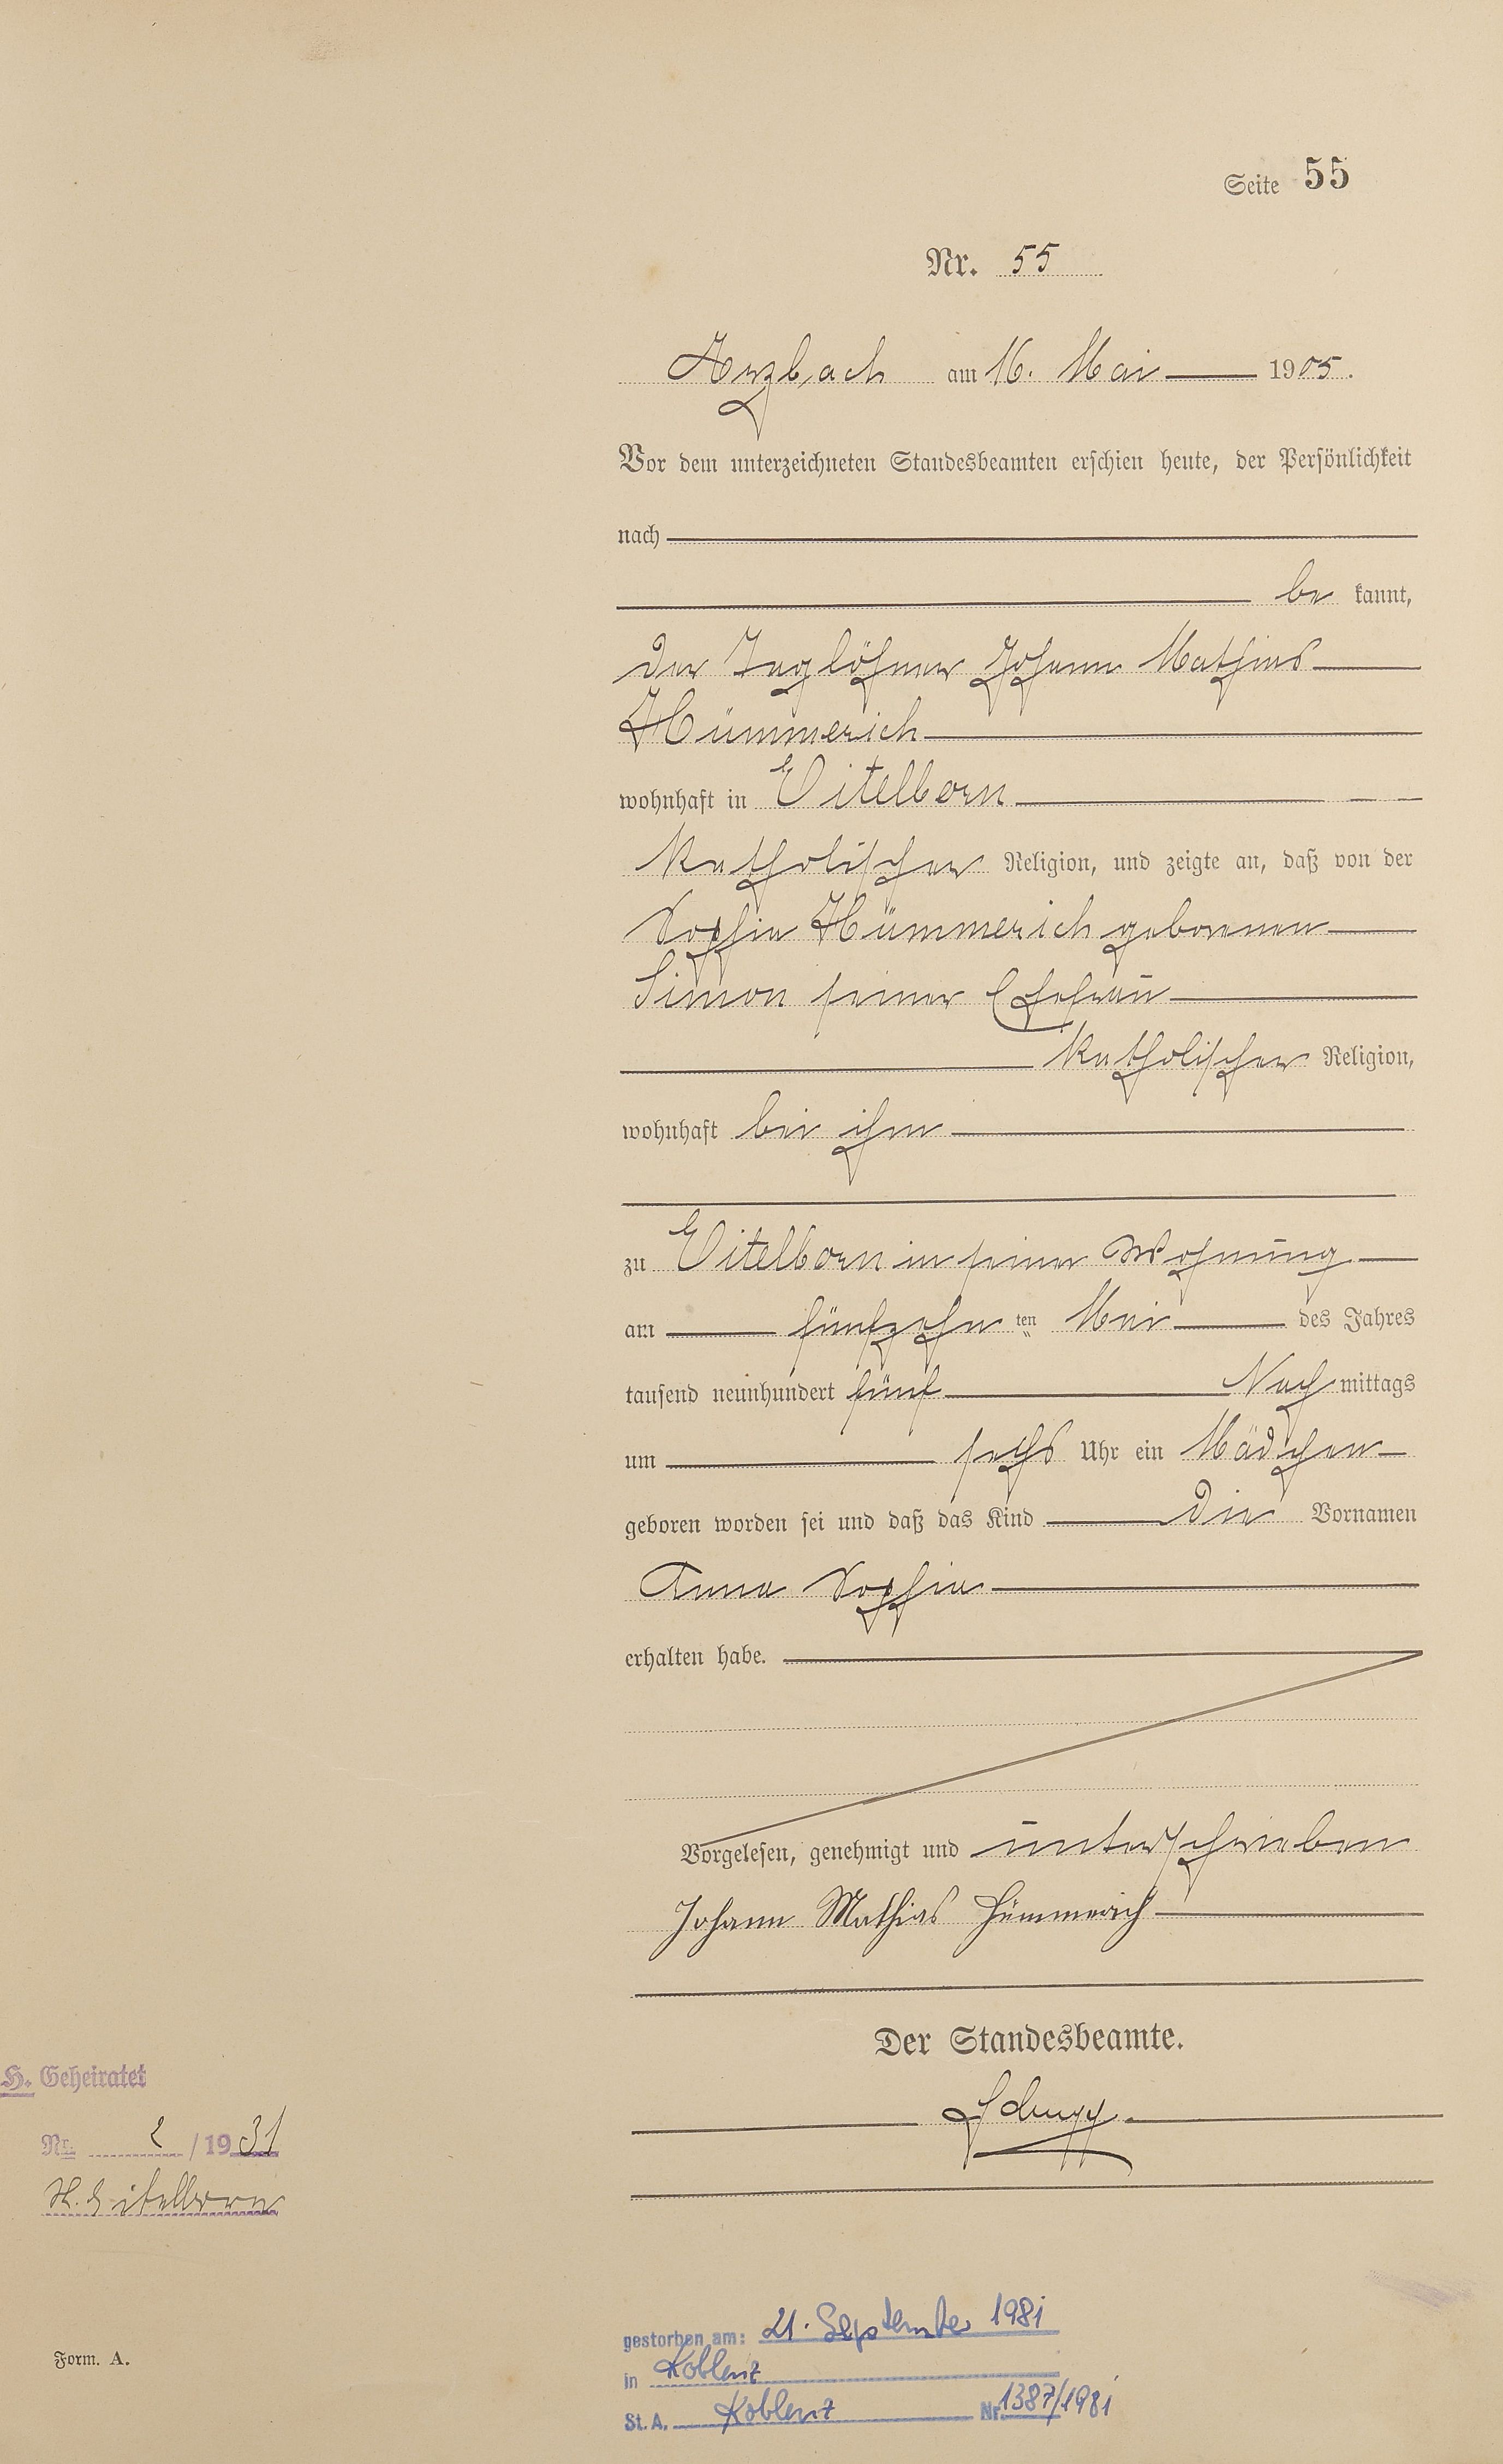 Seite 55
Nr. 55
Arzbach am 16. Mai 1905.
Vor dem unterzeichneten Standesbeamten erschien heute, der Persönlichkeit
nach
be kannt,
der Taglöhner Johann Mathias
Hümmerich
wohnhaft in Eitelborn
katholischer Religion, und zeigte an, daß von der
Sophia Hümmerich geborenen
Simon seiner Ehefrau
katholischer Religion,
wohnhaft bei ihm
zu Eitelborn in seiner Wohnung
am fünfzehn ten Mai des Jahres
tausend neunhundert fünf Nach mittags
um sechs Uhr ein Mädchen
geboren worden sei und daß das Kind die Vornamen
Anna Sophia
erhalten habe.
Vorgelesen, genehmigt und unterschrieben
Johann Mathias Hümmerich
Der Standesbeamte.
H. Geheiratet
Nr. 2 / 1931
St. Eitelborn
Form. A.
gestorben am: 21. September 1981
in Koblenz
St. A. Koblenz Nr. 1387/1981